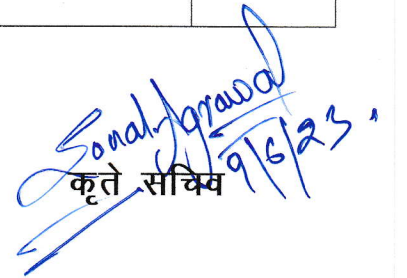 Sonal Agrawal
9/6/23
कृते सचिव